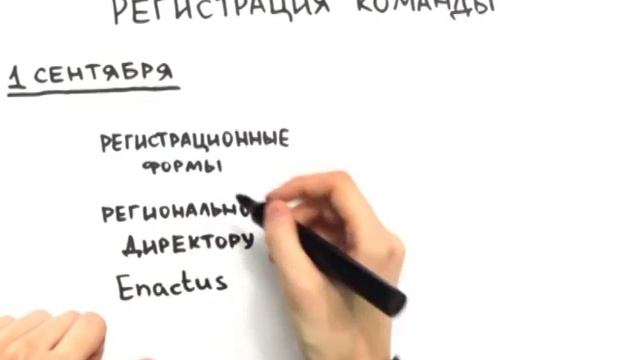 РЕГИСТРАЦИЯ КОМАНДЫ
1 СЕНТЯБРЯ
РЕГИСТРАЦИОННЫЕ
ФОРМЫ
РЕГИОНАЛЬНО
ДИРЕКТОРУ
Enactus